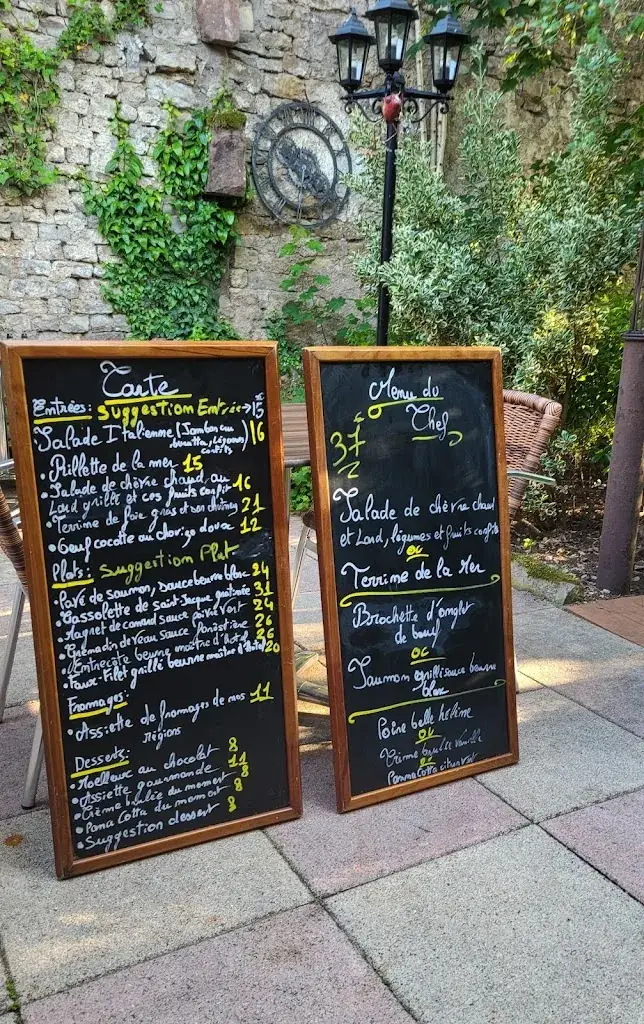 Carte
Entrées: Suggestion Entrée → 15
Salade Italienne (Jambon cru
burratta, légumes confits) 16
• Rillette de la mer 15
• Salade de chèvre chaud au
Lard grillé et ces fruits confit 16
• Terrine de foie gras et son chutney 21
• Oeuf cocotte au chorizo doux 12
Plats: Suggestion Plat
• Pavé de saumon, sauce beurre blanc 24
• Cassolette de saint-Jacque gratinée 31
• Magret de canard sauce poivre vert 24
• Grenadin de veau sauce forestière 26
• Entrecôte beurre maître d'hôtel 26
• Faux-Filet grillé beurre maître d'hôtel 20
Fromages:
• Assiette de fromages de nos 11
régions
Desserts:
• Moelleux au chocolat 8
• Assiette gourmande 11
• Crème brulée du moment 8
• Pana Cotta du moment 8
• Suggestion dessert 8
Menu du
Chef
37
Salade de chèvre chaud
et Lard, légumes et fruits confits
ou
Terrine de la Mer
Brochette d'onglet
de bœuf
ou
Saumon grillé sauce beurre
blanc
Poire belle hélène
ou
Crème brulée vanille
ou
Panna Cotta